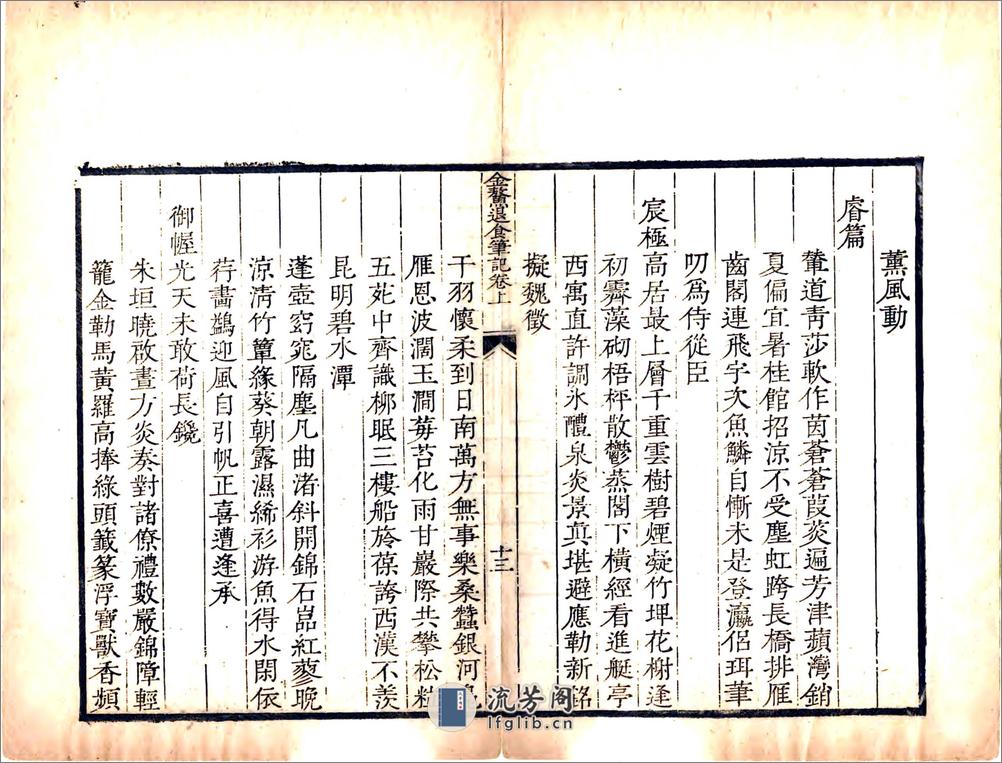 薰風動
睿篇
輦道青莎軟作茵蒼蒼葭菼遍芳津蘋灣銷
夏偏宜暑桂館招涼不受塵虹跨長橋排雁
齒閣連飛宇次魚鱗自慚未是登瀛侶珥筆
叨爲侍從臣
宸極高居最上層千重雲樹碧煙凝竹埤花榭逢
初霽藻砌梧枰散鬱蒸閣下橫經看進艇亭
西寓直許調氷醴泉炎景真堪避應勒新銘
擬魏徵
金鰲退食筆記卷上
十三
干羽懷柔到日南萬方無事樂桑蠶銀河
雁恩波闊玉澗莓苔化雨甘巖際共攀松粒
五苑中齊識柳眠三樓船旍葆誇西漢不羨
昆明碧水潭
蓬壺窈窕隔塵凡曲渚斜開錦石嵓紅蓼晚
涼淸竹簟綠葵朝露濕絺衫游魚得水閑依
荇畫鷁迎風自引帆正喜遭逢承
御幄光天未敢荷長鑱
朱垣曉啟晝方炎奏對諸僚禮數嚴錦障輕
籠金勒馬黃羅高捧綠頭籤篆浮寶獸香頻
流芳阁
lfglib.cn